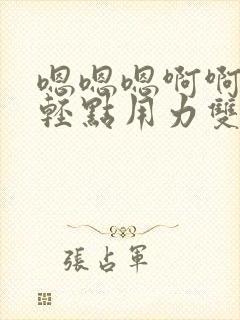 嗯嗯嗯啊啊
輕點用力雙
張占軍